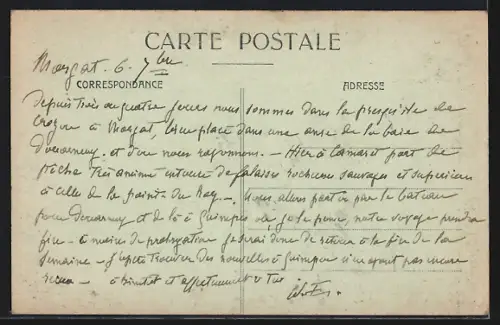 CARTE POSTALE
Morgat. 6. 7bre
CORRESPONDANCE
ADRESSE
Depuis trois ou quatre jours nous sommes dans la presqu'île de
Crozon à Morgat, bien placé dans une anse de la baie de
Douarnenez. et d'où nous rayonnons. - Hier à Camaret port de
pêche très animé entouré de falaises rocheuses sauvages et supérieures
à celle de la pointe du Raz. - Nous allons partir par le bateau
pour Douarnenez et de là à Quimper où, je le pense, notre voyage prendra
fin - à moins de prolongation je serai donc de retour à la fin de la
semaine - J'espère trouver des nouvelles à Quimper n'en ayant pas encore
- à bientôt et affectueusement à toi